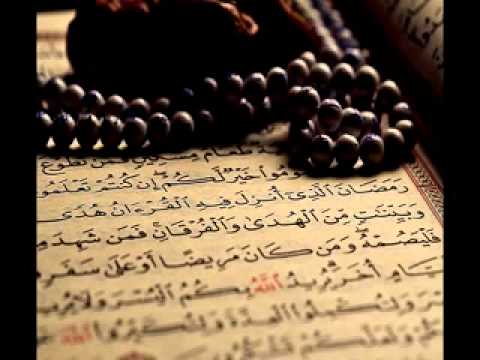 طَعَامُ مِسْكِينٍ فَمَن تَطَوَّعَ
خَيْرٌ لَّكُمْ إِن كُنتُمْ تَعْلَمُو
رَمَضَانَ الَّذِىٓ أُنزِلَ فِيهِ الْقُرْءَانُ هُدًى
وَبَيِّنَٰتٍ مِّنَ الْهُدَىٰ وَالْفُرْقَانِ فَمَن شَهِدَ
فَلْيَصُمْهُ وَمَن كَانَ مَرِيضًا أَوْ عَلَىٰ سَفَرٍ
أُخَرَ يُرِيدُ اللَّهُ بِكُمُ الْيُسْرَ وَلَا
وَلِتُكْمِلُوا الْعِدَّةَ وَلِتُكَبِّرُوا اللَّهَ
وَلَعَلَّكُمْ